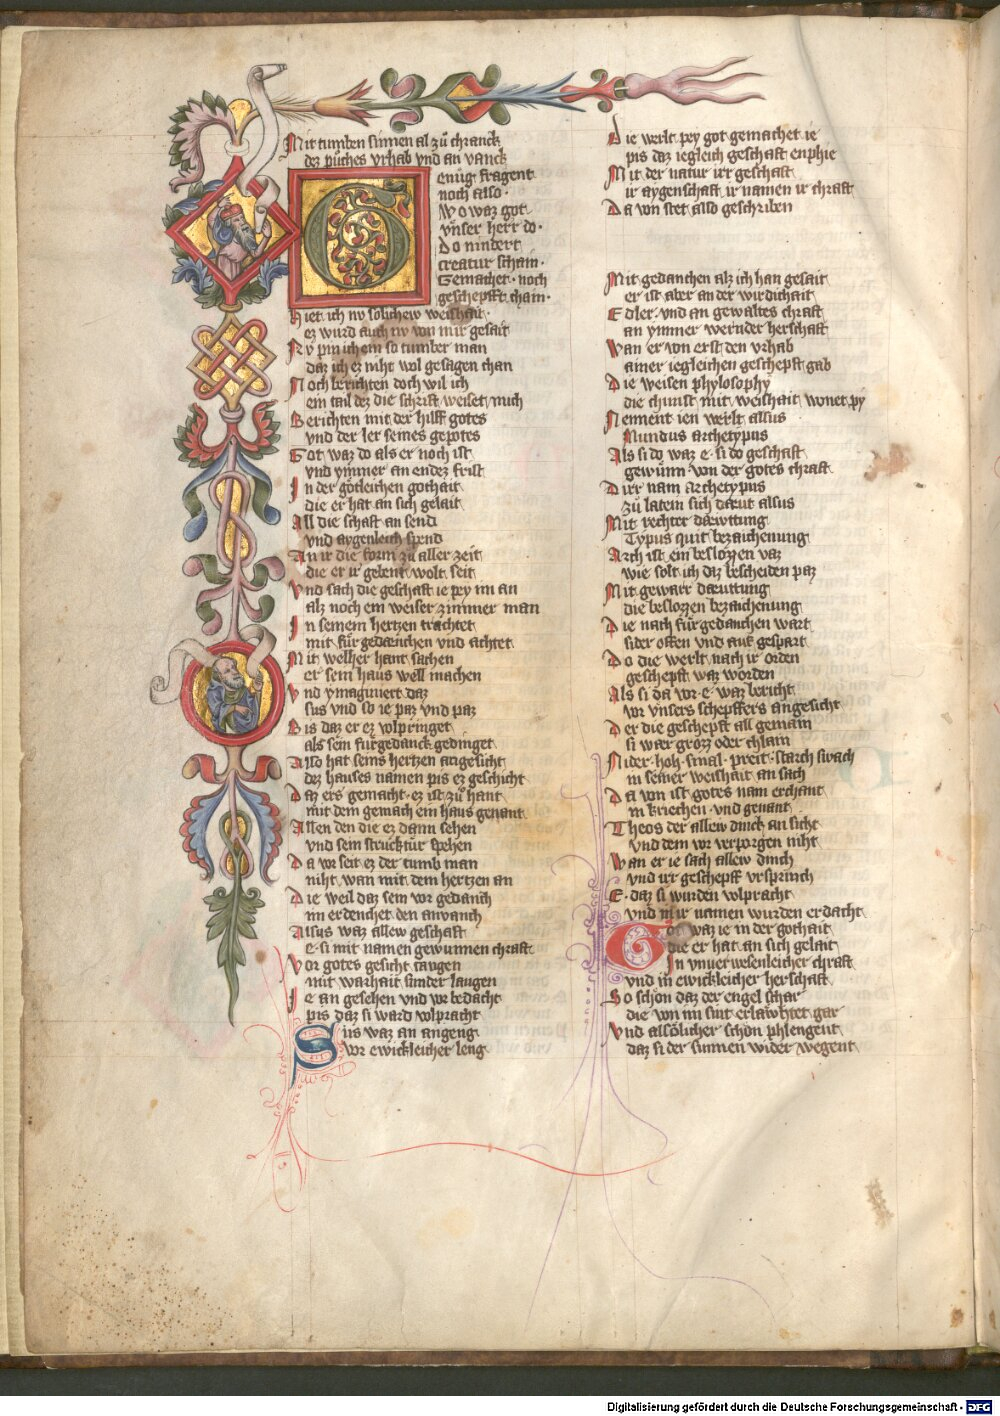 Mit tumben sinnen al zů chranck
dez půches vrhab vnd an vanck
Genůg fragent
noch also ·
Wo waz got
vnser herr do ·
Do nindert
creatur schain ·
Gemachet · noch
geschepfft chain ·
Hiet ich nv sölichew weishait
ez wurd auch nv von mir gesait
Ny pin ich ein so tumber man
daz ich ez niht wol gesagen chan
Noch berichten doch wil ich
ein tail dez die schrift weiset mich
Berichten mit der hilff gotes
vnd der ler seines gepotes
Got waz do als er noch ist
vnd ymmer an endez frist
In der götleichen gothait
die er hat an sich gelait
All die schaft an send
vnd aygenleich spend
An ir die form zů aller zeit
die er ir gebent wolt seit
Vnd sach die geschaft ie pey im an
alz noch ein weiser zimmer man
In seinem hertzen trachtet
mit fürgedæchen vnd achtet
Mit welher hant sachen
er sein haus well machen
Vnd ymaginiert daz
sus vnd so ie paz vnd paz
Bis daz er ez volpringet
als sein fürgedanck gedinget
Also hat seins hertzen angesicht
dez hauses namen pis ez geschicht
Daz ers gemacht · ez ist zů hant
mit dem gemach ein haus genant
Allen den die ez dann sehen
vnd sein strucktür spehen
Da vor seit ez der tumb man
niht wan mit dem hertzen an
Die weil daz sein vor gedanch
im erdenchet den anvanch
Alsus waz allew geschaft
e · si mit namen gewunnen chraft
Vor gotes gesicht taugen
mit warhait sunder laugen
Ie an gesehen vnd we bedacht
pis daz si ward volpracht
Sus waz an angeng
vor ewickleicher leng
Die werlt pey got gemachet ie
pis daz iegleich geschaft enphie
Mit der natur irr geschaft
ir aygenschaft ir namen ir chraft
Da von stet also geschriben
Mit gedanchen alz ich han gesait
er ist aber an der wirdichait
Edler · vnd an gewaltes chraft
an ymmer wernder herschaft
Van er von erst den vrhab
ainer iegleichen geschepft gab
Die weisen phylosophy
die chunst mit weishait wonet py
Nennent ien werlt alsus
Mundus archetypus
Als si do waz e · si do geschaft
gewunn von der gotes chraft
Dirr nam archetypus
zů latein sich dæut alsus
Mit rechter dæwttung
Typus quit bezaichenung
Arch ist ein beslozzen vaz
wie solt ich daz bescheiden paz
Mit gewarr dæuttung
die beslozzen bezaichenung
Die nach für gedanchen wart
sider offen vnd auf gespart
Do die werlt nach ir orden
geschepft waz worden
Als si da vor · e · waz bericht
vor vnsers schepffers angesicht
Der die geschepft all gemain
si wær grozz oder chlain
Nider · hoh · smal · preit · starch swach
in seiner weishait an sach
Da von ist gotes nam erchant
in kriechen · vnd genant
Theos der allew dinck an sicht
vnd dem vor verporgen niht
Wan er ie sach allew dinch
vnd irr geschepff vrsprinch
E · daz si wurden volpracht
vnd in ir namen wurden erdacht
Got waz ie in der gothait
die er hat an sich gelait
In vnuerwesenleicher chraft
vnd in ewickleicher herschaft
So schön daz der engel schar
die von im sint erlæwhtet gar
Vnd alsölicher schön phlengent
daz si der sunnen wider wegent
Digitalisierung gefördert durch die Deutsche Forschungsgemeinschaft - DFG